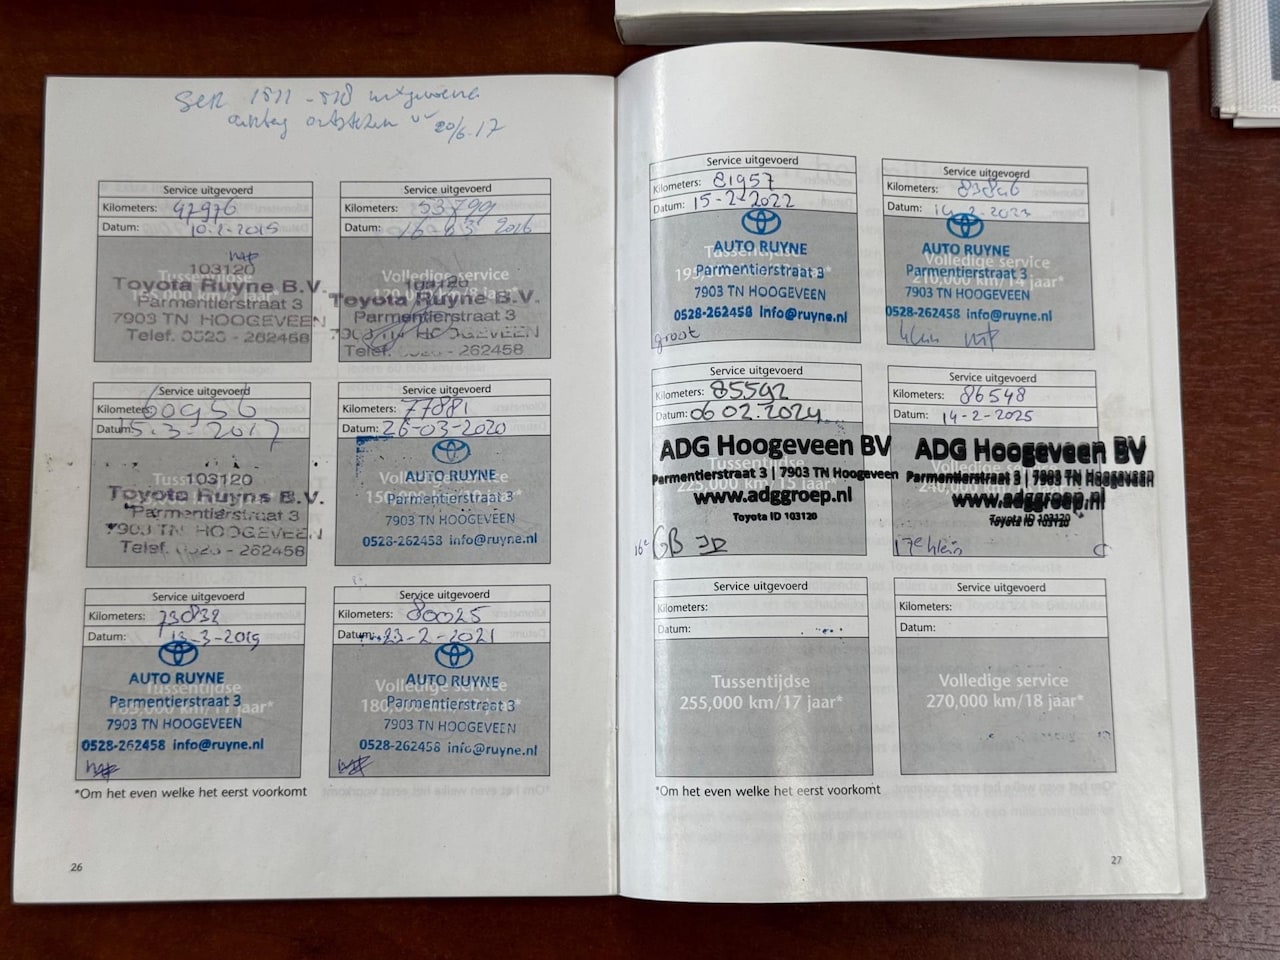 20/6-17
Service uitgevoerd
Kilometers: 47976
Datum: 10-2-2015
Tussentijdse
103120
Toyota Ruyne B.V.
Parmentierstraat 3
7903 TN HOOGEVEEN
Telef. 0528 - 262458
Service uitgevoerd
Kilometers: 53799
Datum: 16-03 2016
Volledige service
103120
Toyota Ruyne B.V.
Parmentierstraat 3
7903 TN HOOGEVEEN
Telef. 0528 - 262458
Service uitgevoerd
Kilometers: 60956
Datum: 5-3-2017
103120
Toyota Ruyne B.V.
Parmentierstraat 3
7903 TN HOOGEVEEN
Telef. 0528 - 262458
Service uitgevoerd
Kilometers: 77881
Datum: 26-03-2020
AUTO RUYNE
Parmentierstraat 3
7903 TN HOOGEVEEN
0528-262458 info@ruyne.nl
Service uitgevoerd
Kilometers: 73832
Datum: 13-3-2019
Tussentijdse
AUTO RUYNE
Parmentierstraat 3
7903 TN HOOGEVEEN
0528-262458 info@ruyne.nl
Service uitgevoerd
Kilometers: 80025
Datum: 23-2-2021
Volledige service
AUTO RUYNE
Parmentierstraat 3
7903 TN HOOGEVEEN
0528-262458 info@ruyne.nl
*Om het even welke het eerst voorkomt
26
Service uitgevoerd
Kilometers: 81957
Datum: 15-2-2022
Tussentijdse
AUTO RUYNE
Parmentierstraat 3
7903 TN HOOGEVEEN
0528-262458 info@ruyne.nl
groot
Service uitgevoerd
Kilometers:
Datum: 14-2-2023
Volledige service
210,000 km/14 jaar*
AUTO RUYNE
Parmentierstraat 3
7903 TN HOOGEVEEN
0528-262458 info@ruyne.nl
klein
Service uitgevoerd
Kilometers: 85592
Datum: 06 02.2024
Tussentijdse
225,000 km/15 jaar*
ADG Hoogeveen BV
Parmentierstraat 3 | 7903 TN Hoogeveen
www.adggroep.nl
Toyota ID 103120
16e GB
Service uitgevoerd
Kilometers: 86548
Datum: 14-2-2025
ADG Hoogeveen BV
Parmentierstraat 3 | 7903 TN Hoogeveen
www.adggroep.nl
Toyota ID 103120
17e klein
Service uitgevoerd
Kilometers:
Datum:
Tussentijdse
255,000 km/17 jaar*
Service uitgevoerd
Kilometers:
Datum:
Volledige service
270,000 km/18 jaar*
*Om het even welke het eerst voorkomt
27